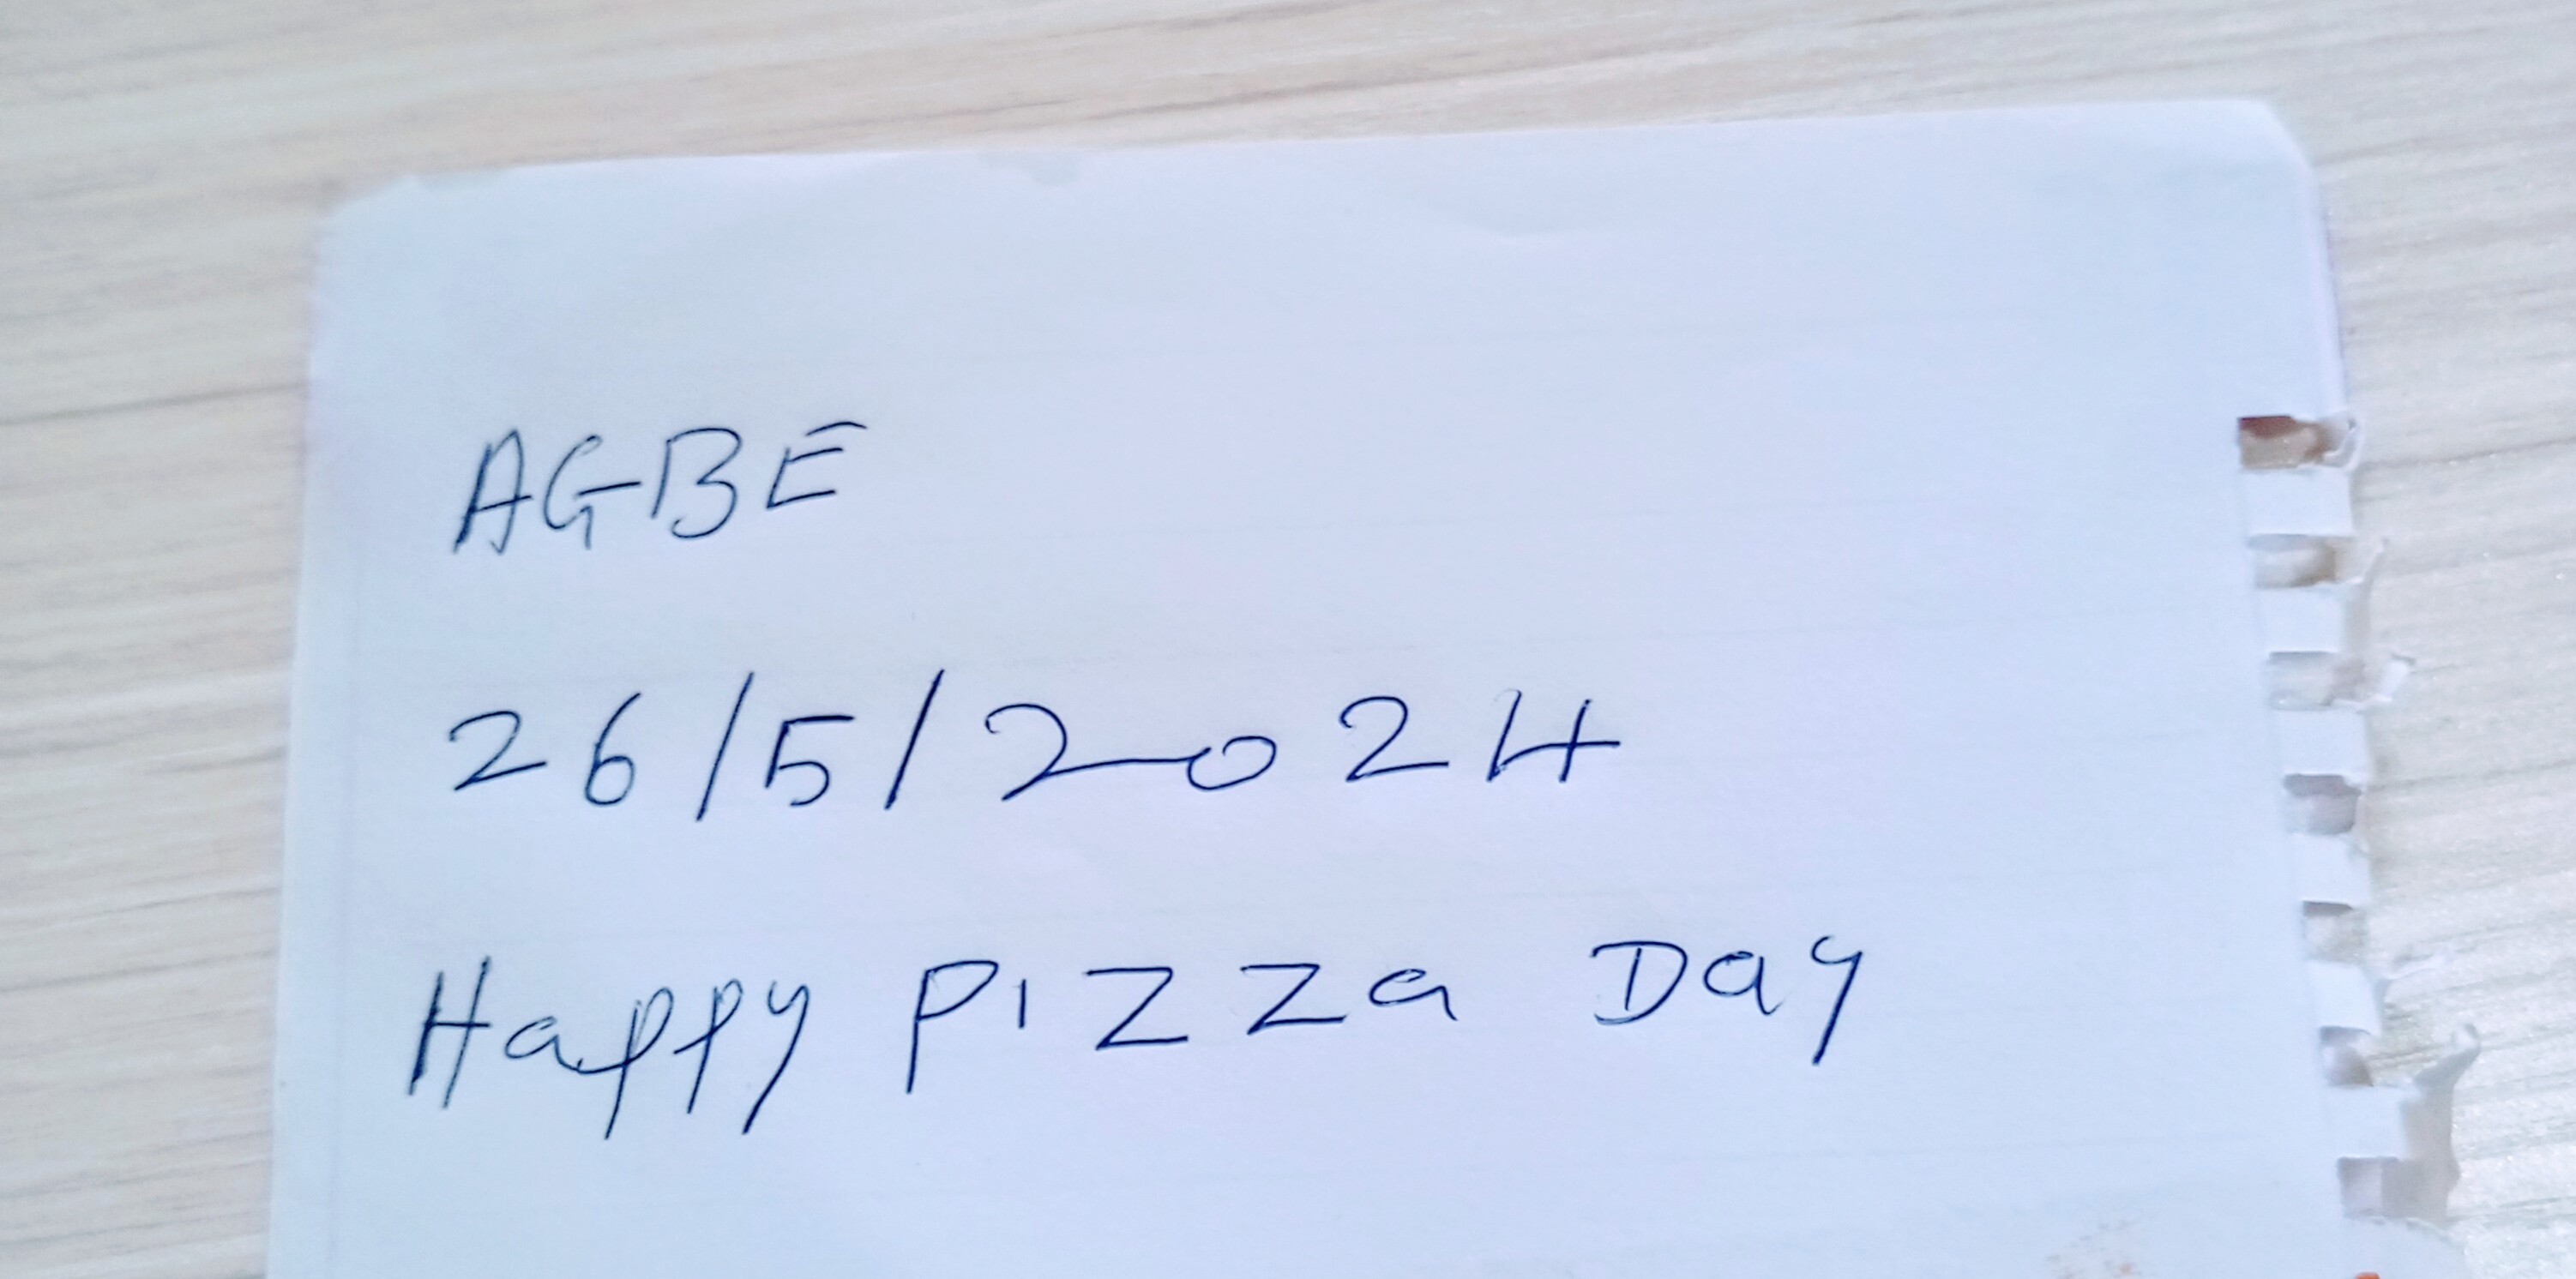 AGBE
26/5/2024
Happy Pizza Day